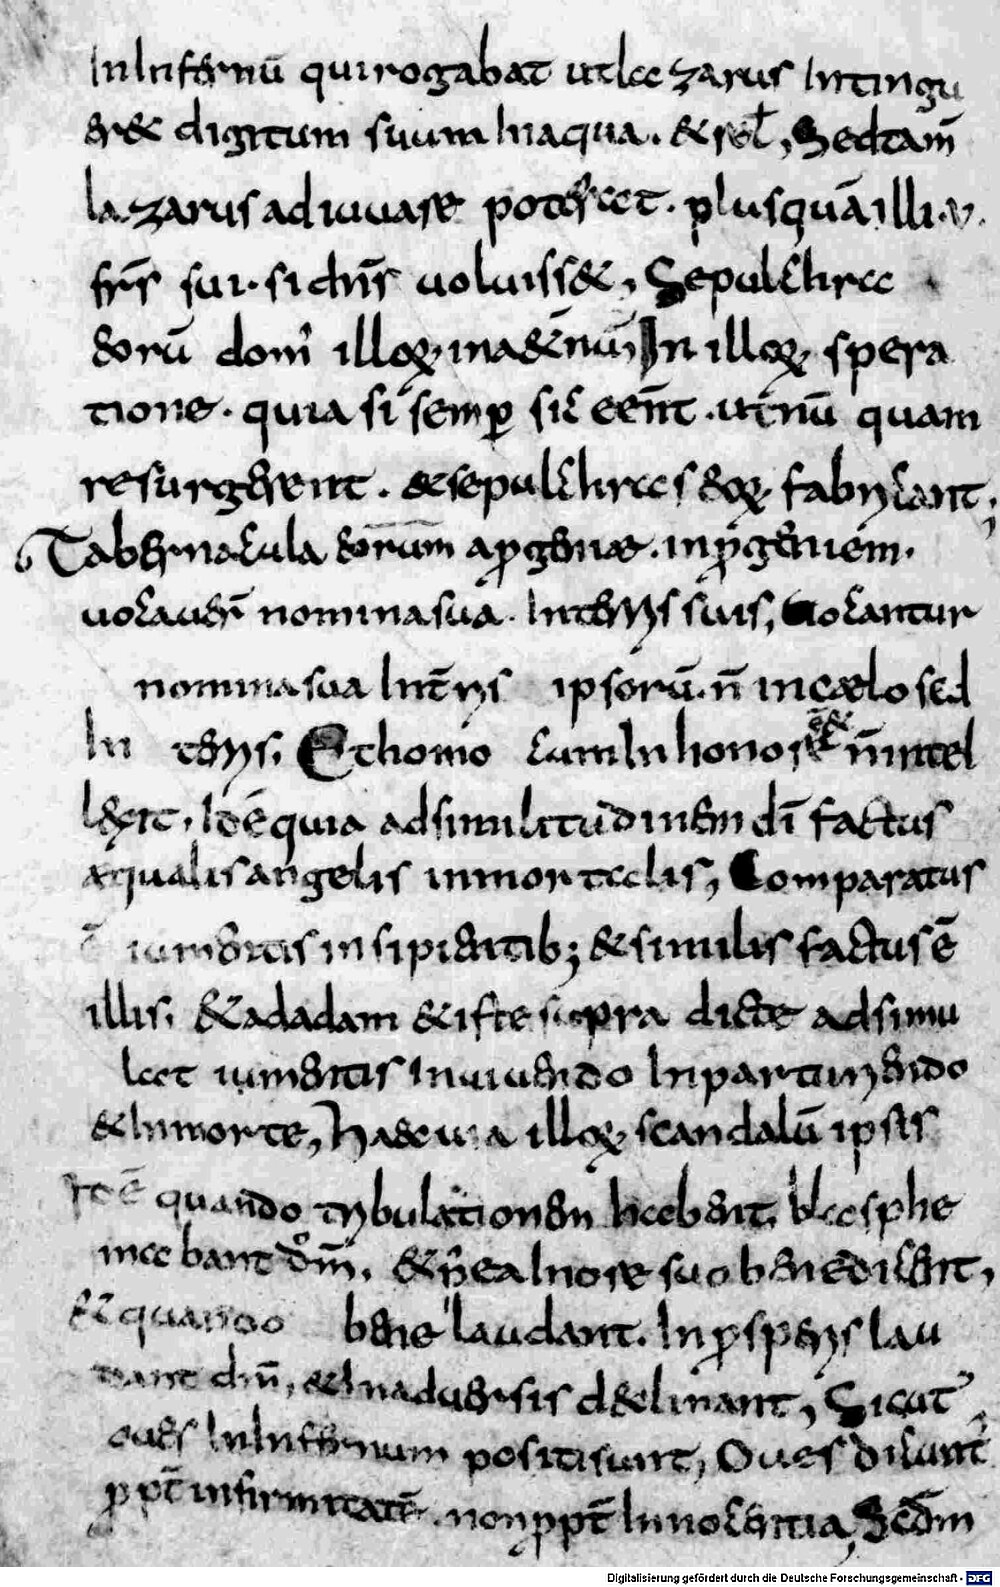 In infernū qui rogabat ut lazarus intingu
er& digitum suum in aqua. & rel, Sed tam̄
lazarus adiuuare potercet. plus quā illi. v.
frs̄ sui. si dns̄ uoluiss&, Sepulchra
eorū dom' illoꝝ in aet̄nū, In illoꝝ spera
tione. quia si semꝑ sic eēnt. ut nū quam
resurgerent. & sepulchra sic eoꝝ fabricant,
Tabernacula eorum a ꝓgeniae. in ꝓgeniem.
uocauer̄ nomina sua. In terris suis, Uocantur
nomina sua In t̄ris ipsorū. n̄ in caelo sed
In terris. Et homo cum In honore ēēt n̄ intel
lexit, Id ē quia ad similitudinem dī factus
aequalis angelis inmortalis, Comparatus
ē iumentis insipientib; & similis factus ē
illis. & ad adam & iste supra dicte adsimu
lat iumentis in uiuendo In parturiendo
& In morte, Haec uia illoꝝ scandalū ipsis
Id ē quando tribulationem habent, blasphe
mabant dom̄, & p̄ ea In ore suo benedicent,
& quando bene laudant. In ꝓsperis lau
dant dn̄m, & In aduersis declinant, Sicut
oues In Infernum positi sunt, Oues dicunt'
ꝓpt̄ infirmitatē. non ꝓpt̄ Innocentia, Scdm̄
Digitalisierung gefördert durch die Deutsche Forschungsgemeinschaft - DFG